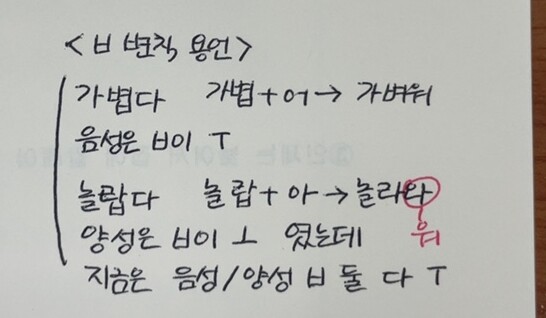 <ㅂ 변칙 용언>
가볍다 가볍+어→ 가벼워
음성은 ㅂ이 ㅜ
놀랍다 놀랍+아→놀라와
양성은 ㅂ이 ㅗ 였는데 워
지금은 음성/양성 ㅂ 둘 다 ㅜ